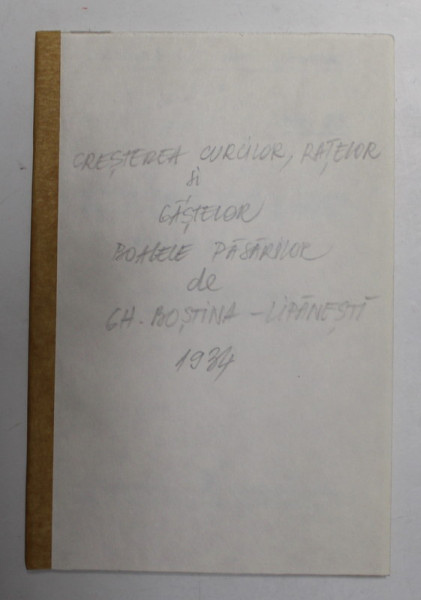 CREȘTEREA CURCILOR, RAȚELOR
și
GÂȘTELOR
BOALELE PĂSĂRILOR
de
GH. BOȘTINA - LIPĂNEȘTI
1934